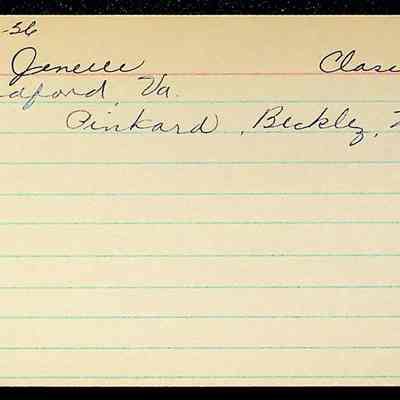 -56
Jenelle Clase
dford, Va.
Pinkard, Beckley,